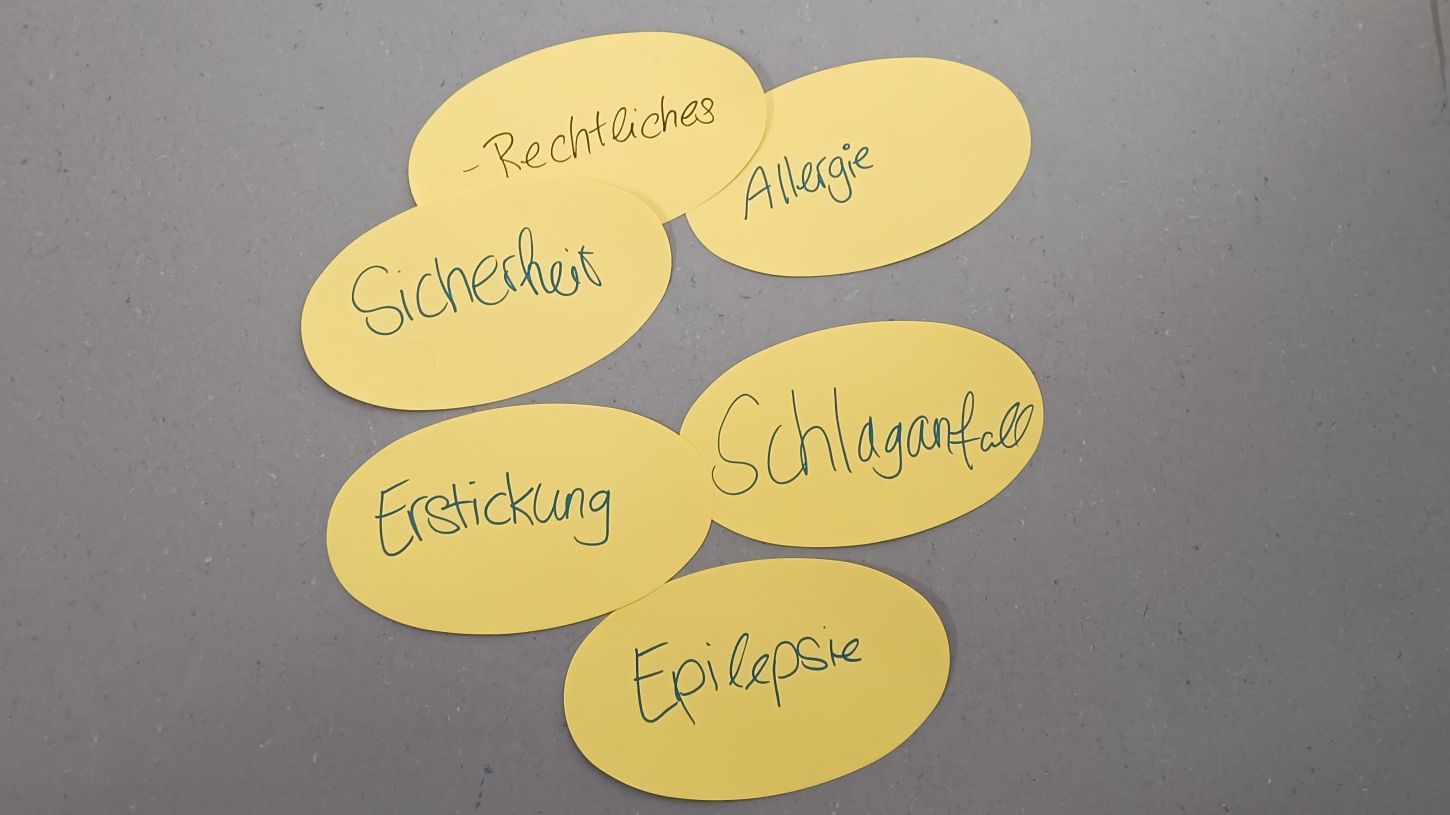 -Rechtliches
Allergie
Sicherheit
Schlaganfall
Erstickung
Epilepsie